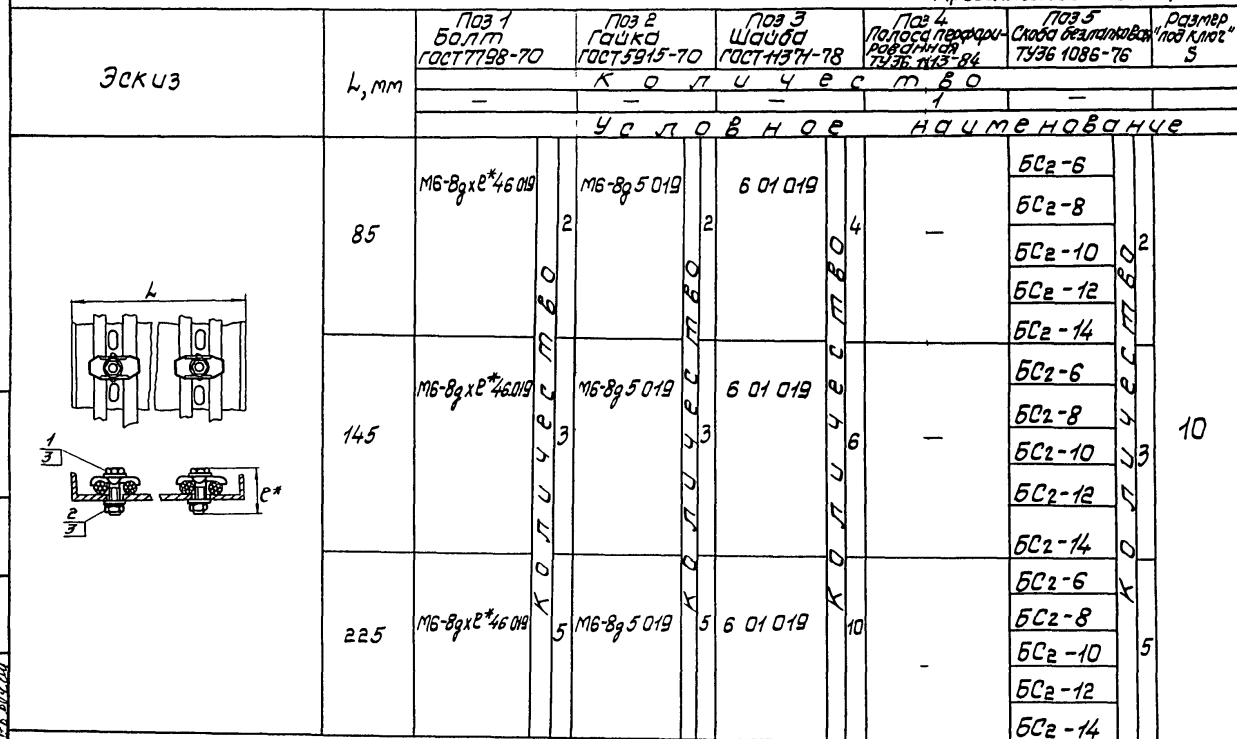 Эскиз
L, мм
Поз 1
Болт
ГОСТ 7798-70
Поз 2
Гайка
ГОСТ 5915-70
Поз 3
Шайба
ГОСТ 11371-78
Поз 4
Полоса перфори-
рованная
ТУ36 1113-84
Поз 5
Скоба безлапковая
ТУ36 1086-76
Размер
"под ключ"
S
Количество
— — — 1 —
Условное наименование
85
М6-8gхℓ*46 019
Количество
2
М6-8g 5 019
Количество
2
6 01 019
Количество
4
—
БС2-6
БС2-8
БС2-10
БС2-12
БС2-14
Количество
2
10
145
М6-8gхℓ*46.019
3
М6-8g 5 019
3
6 01 019
6
—
БС2-6
БС2-8
БС2-10
БС2-12
БС2-14
3
225
М6-8gхℓ*46 019
5
М6-8g 5 019
5
6 01 019
10
-
БС2-6
БС2-8
БС2-10
БС2-12
БС2-14
5
L
1
3
2
3
ℓ*